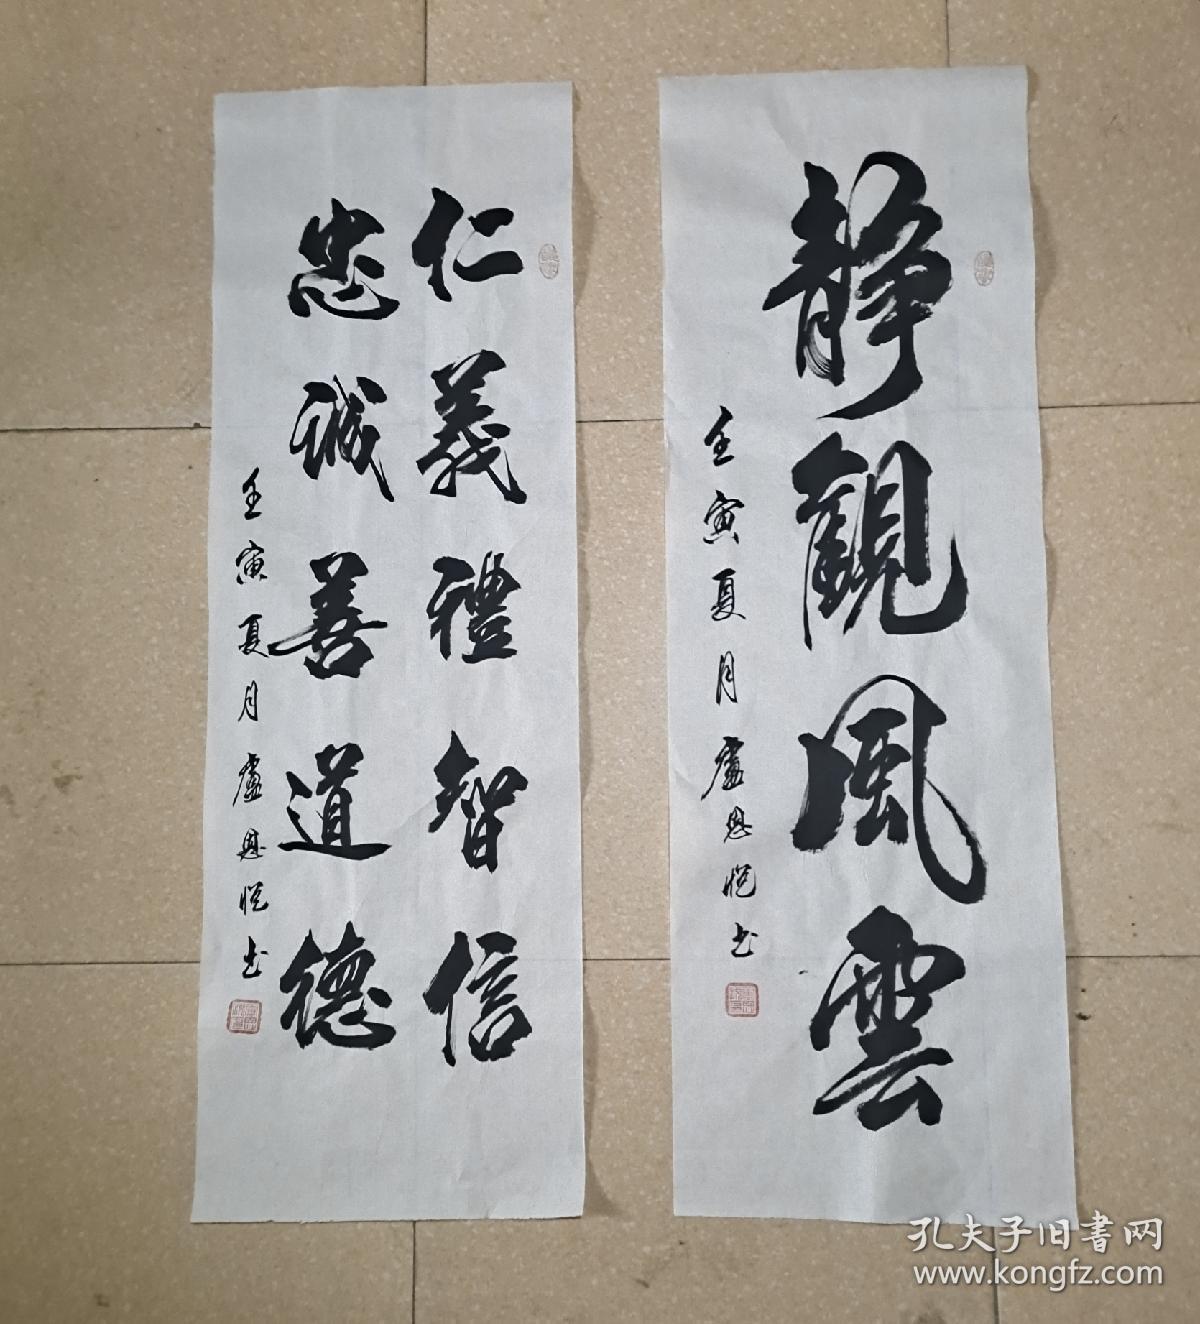 靜觀風雲
壬寅夏月盧恩悅书
仁義禮智信
忠誠善道德
壬寅夏月盧恩悅书
孔夫子旧书网
www.kongfz.com